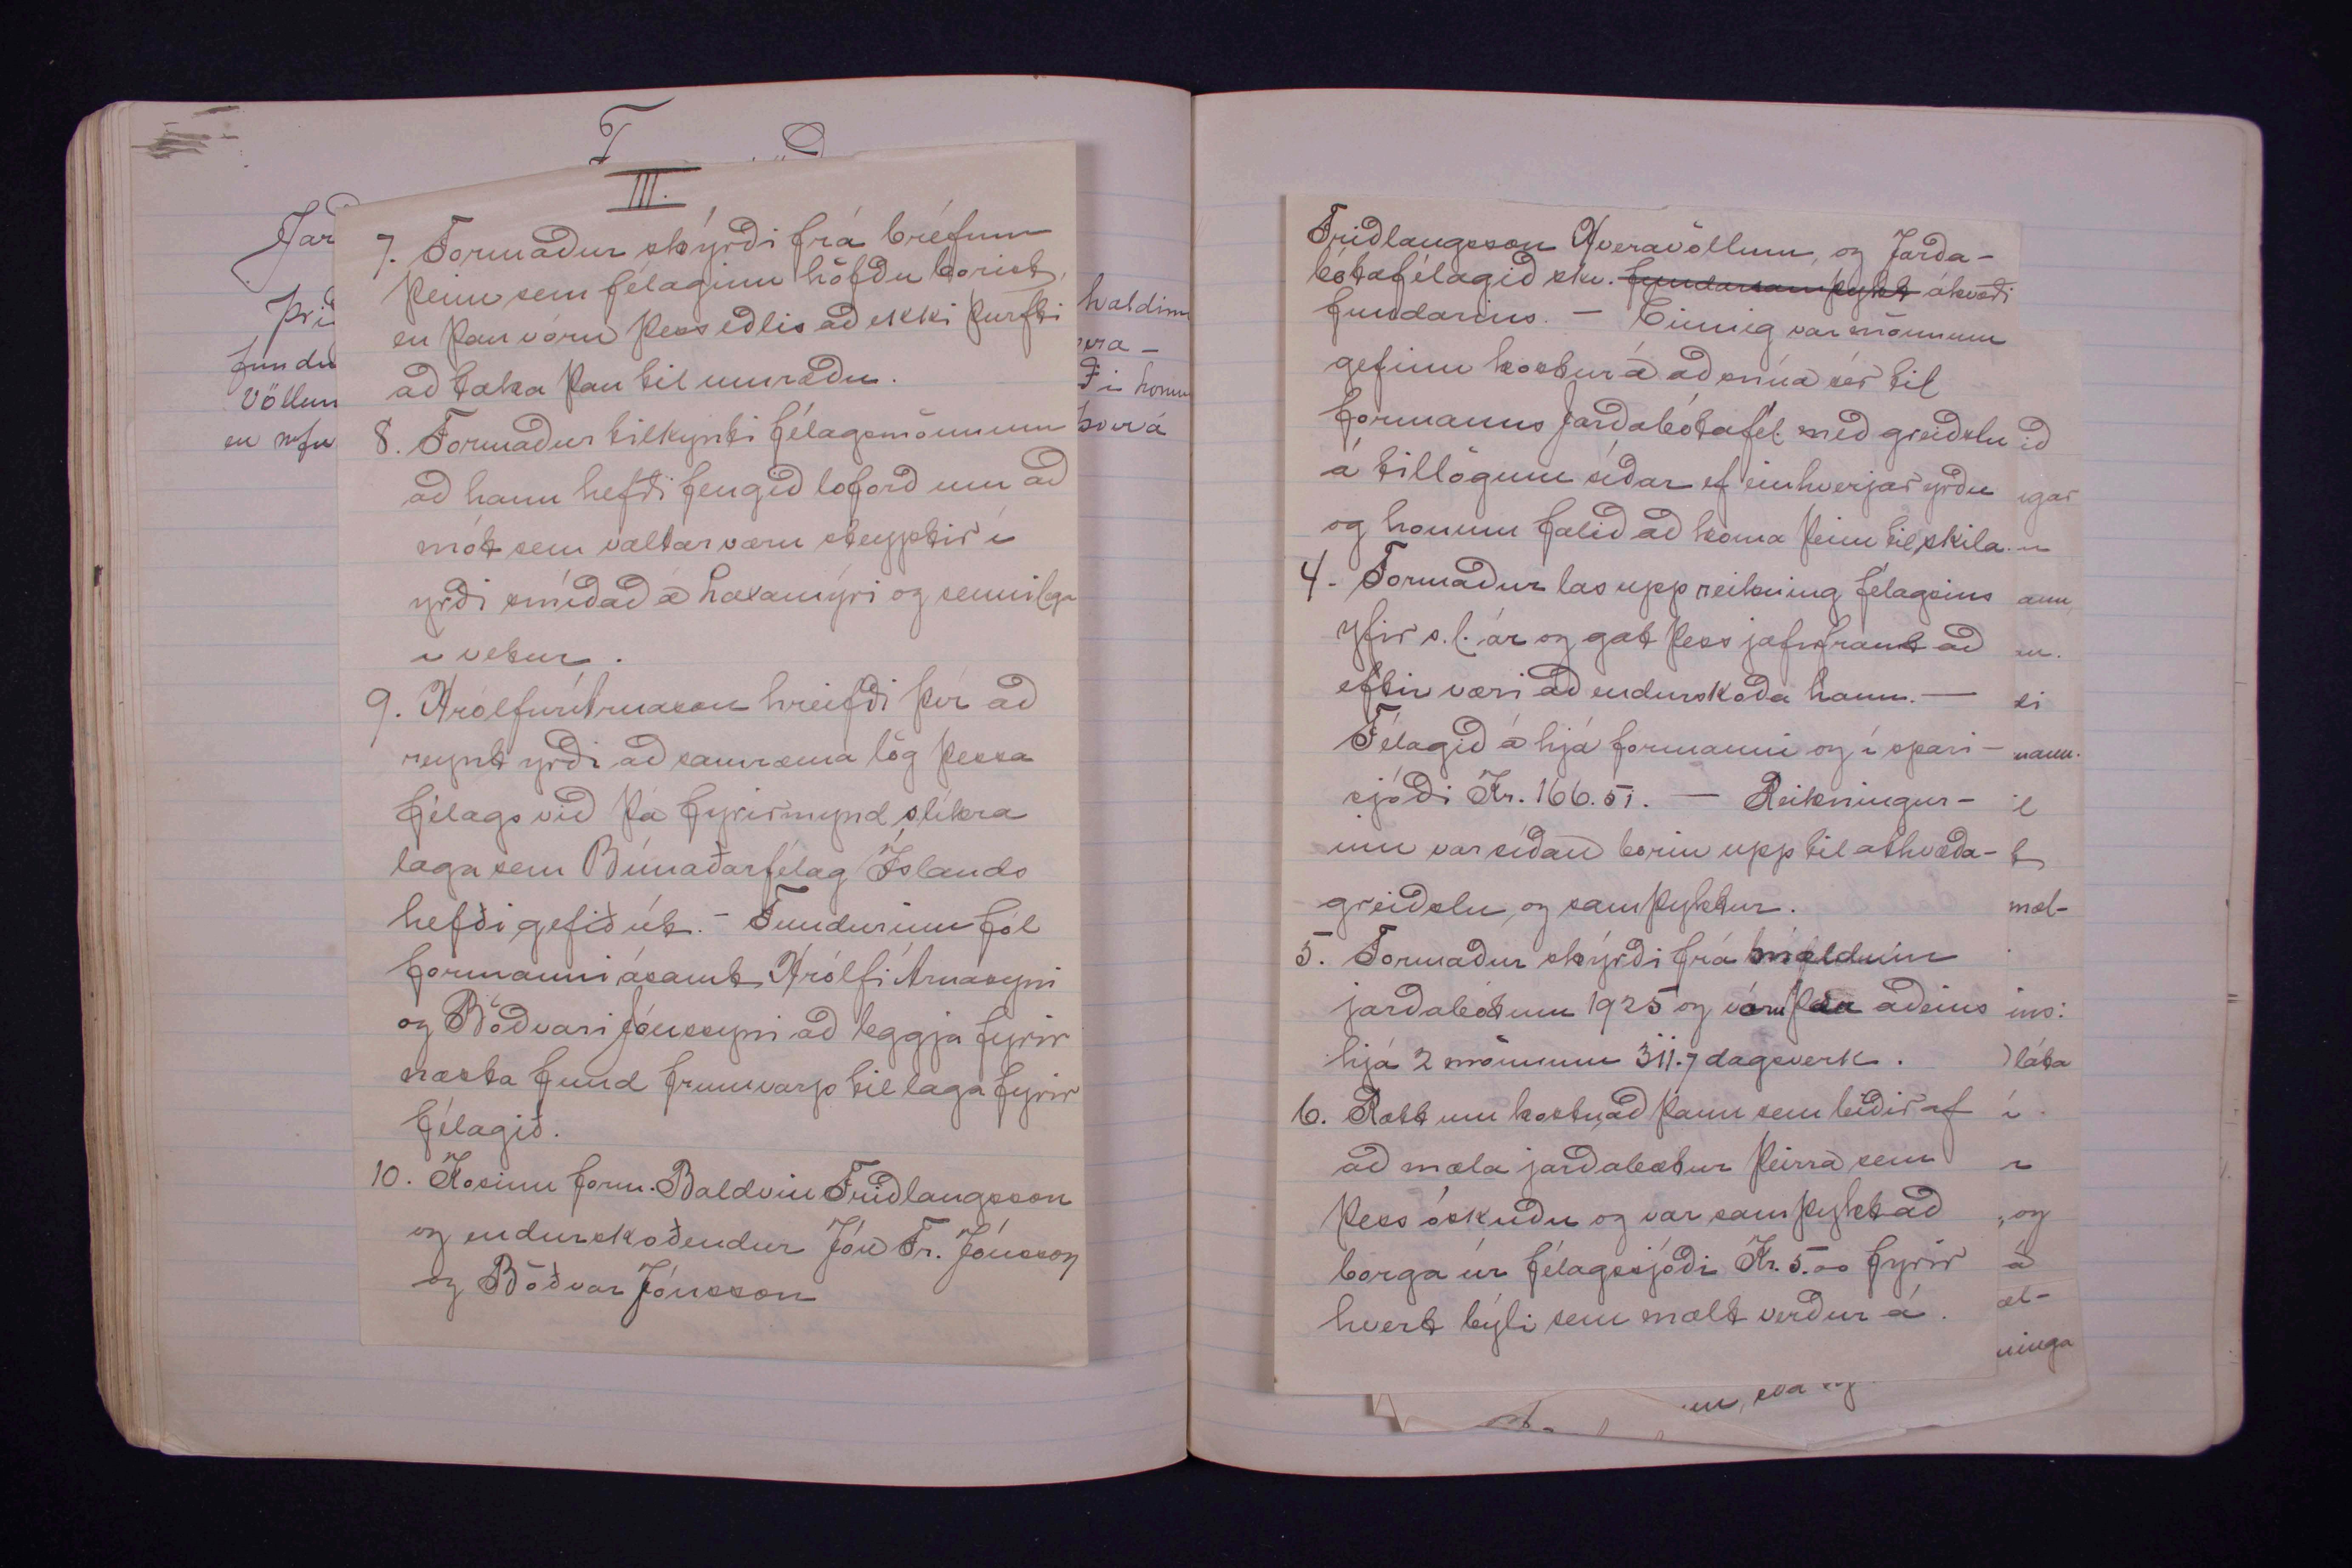 III.
7. Formaður skýrði frá bréfum
þeim sem félaginu höfðu borist,
en þau vóru þess eðlis að ekki þurfti
að taka þau til umræðu.
8. Formaður tilkynti félagsmönnum
að hann hefði fengið loforð um að
mót sem valtar væru steyptir í
yrði smíðað á Laxamýri og sennilega
í vetur.
9. Hrólfur Árnason hreifði því að
reynt yrði að samræma lög þessa
félags við þá fyrirmynd slíkra
laga sem Búnaðarfélag Íslands
hefði gefið út. - Fundurinn fól
formanni ásamt Hrólfi Árnasyni
og Böðvari Jónssyni að leggja fyrir
næsta fund frumvarp til laga fyrir
félagið.
10. Kosinn form. Baldvin Friðlaugsson
og endurskoðendur Jón Fr. Jónsson
og Böðvar Jónsson
Jar
Þrið
fundu
völlum
en nefn
haldinn
vera-
ð i honum
hverá
Friðlaugsson Hveravöllum, og Jarða-
bótafélagið skv. fundarsamþykt ákvæði
fundarins. - Einnig var mönnum
gefinn kostur á að snúa sér til
formanns Jarðabótafél. með greiðslu
á tillögum síðar ef einhverjar yrðu
og honum falið að koma þeim til skila.
4. Formaður las upp reikning félagsins
yfir s.l. ár og gat þess jafnframt að
eftir væri að endurskoða hann. —
Félagið á hjá formanni og í spari-
sjóði Kr. 166.51. — Reikningur-
inn var síðan borin upp til atkvæða-
greiðslu, og samþyktur.
5. Formaður skýrði frá mældum
jarðabótum 1925 og vóru þær aðeins
hjá 2 mönnum 311.7 dagsverk.
6. Rætt um kostnað þann sem leiðir af
að mæla jarðabætur þeirra sem
þess óskuðu og var samþykt að
borga úr félagssjóði Kr. 5.00 fyrir
hvert býli sem mælt verður á.
ið
igar
ann,
si
nann.
il
t
mæl-
ins:
) láta
í
r
, og
á
æl-
ninga